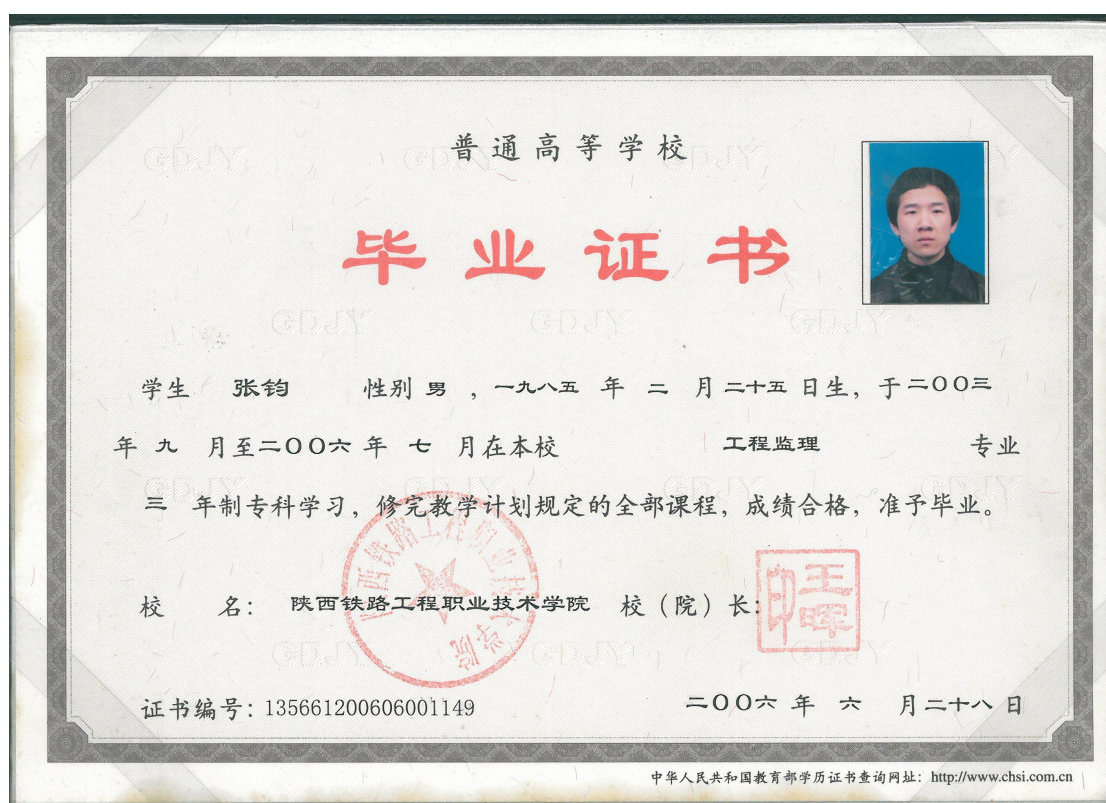 普通高等学校
毕业证书
学生 张钧 性别 男 ，一九八五 年 二 月二十五日生，于二〇〇三
年 九 月至二〇〇六年 七 月在本校 工程监理 专业
三 年制专科学习，修完教学计划规定的全部课程，成绩合格，准予毕业。
陕西铁路工程职业技术学院
王晖印
校 名：陕西铁路工程职业技术学院 校（院）长：
证书编号：135661200606001149 二〇〇六 年 六 月二十八日
中华人民共和国教育部学历证书查询网址：http://www.chsi.com.cn
GDJY GDJY GDJY